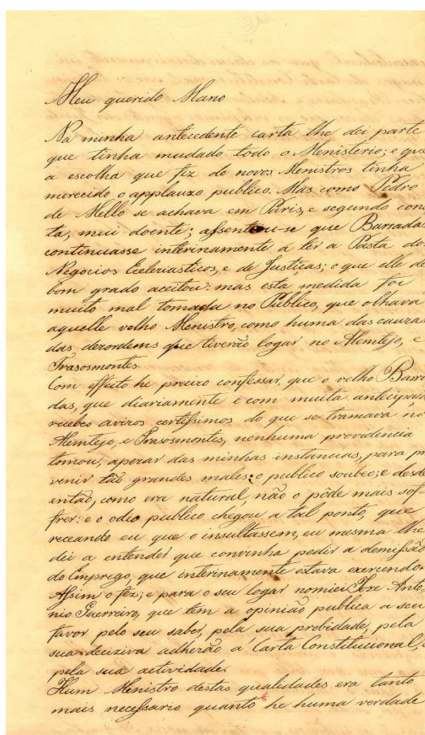 Meu querido Mano
Na minha antecedente carta lhe dei parte
que tinha mudado todo o Menisterio; e que
a escolha que fiz de novos Menistros tinha
merecido o applauzo publico. Mas como Pedro
de Mello se achava em Paris, e segundo cons
ta, mui doente; assentou-se que Barradas
continuasse interinamente a ter a Pasta dos
Negocios Ecleziasticos, e de Justiças; o que elle de
bom grado aceitou: mas esta medida foi
muito mal tomada no Publico, que olhava
aquelle velho Menistro, como huma das cauzas
das dezordens que tiverão logar no Alemtejo, e
Trasosmontes.
Com effeito he precizo confessar, que o velho Barra
das, que diariamente e com muita anticipa
recebeo avizos certissimos do que se tramava no
Alemtejo, e Trasosmontes, nenhuma providencia
tomou, apezar das minhas instancias, para pr
venir tão grandes males; o publico soube-o; e desde
então, como era natural, não o pôde mais sof
frer: e o odio publico chegou a tal ponto, que
receando eu que o insultassem, eu mesma lhe
dei a entender que convinha pedir a demissão
do Emprego, que interinamente estava exercendo.
Assim o fez; e para o seu logar nomiei Joze Anto
nio Guerreiro, que tem a opinião publica a seu
favor pelo seu saber, pela sua probidade, pela
sua deciziva adherão a Carta Constitucional, e
pela sua actividade.
Hum Menistro destas qualidades era tanto
mais necessario quanto he huma verdade